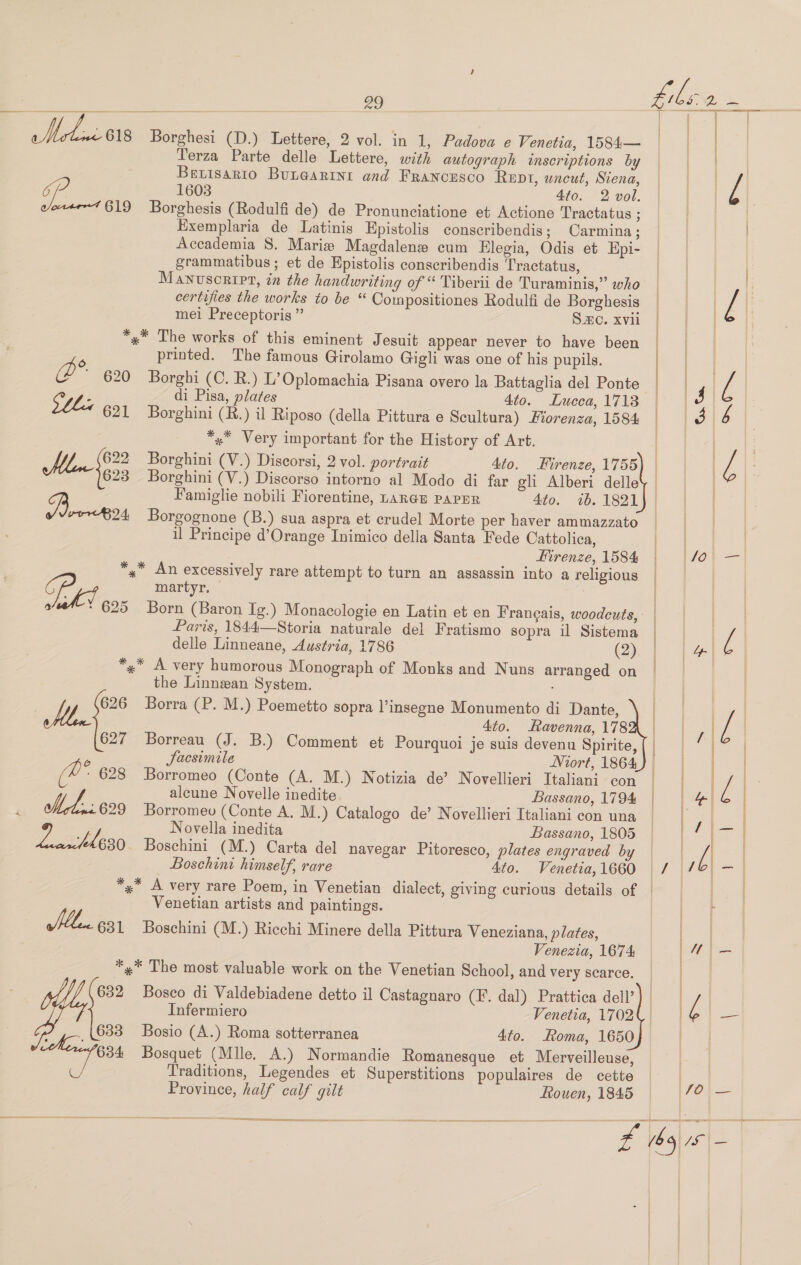 29
618 Borghesi (D.) Lettere, 2 vol. in 1, Padova e Venetia, 1584—
Terza Parte delle Lettere, with autograph inscriptions by
Belisario Bulgarini and Francesco Redi, uncut, Siena,
1603 4to. 2 vol.
619 Borghesis (Rodulfi de) de Pronunciatione et Actione Tractatus;
Exemplaria de Latinis Epistolis conscribendis; Carmina;
Accademia S. Mariæ Magdalenæ cum Elegia, Odis et Epi-
grammatibus; et de Epistolis conscribendis Tractatus,
Manuscript, in the handwriting of “Tiberii de Turaminis,” who
certifies the works to be “Compositiones Rodulfi de Borghesis
mei Preceptoris” Sæc. xvii
*** The works of this eminent Jesuit appear never to have been
printed. The famous Girolamo Gigli was one of his pupils.
Do. 620 Borghi (C. R.) L’Oplomachia Pisana overo la Battaglia del Ponte
di Pisa, plates 4to. Lucca, 1713
Ellis 621 Borghini (R.) il Riposo (della Pittura e Scultura) Fiorenza, 1584 3 6
*** Very important for the History of Art.
Allen 622 Borghini (V.) Discorsi, 2 vol. portrait 4to. Firenze, 1755
623 Borghini (V.) Discorso intorno al Modo di far gli Alberi delle
Famiglie nobili Fiorentine, LARGE PAPER 4to. ib. 1821
624 Borgognone (B.) sua aspra et crudel Morte per haver ammazzato
il Principe d’Orange Inimico della Santa Fede Cattolica,
Firenze, 1584 10 —
*** An excessively rare attempt to turn an assassin into a religious
martyr.
625 Born (Baron Ig.) Monacologie en Latin et en Français, woodcuts,
Paris, 1844—Storia naturale del Fratismo sopra il Sistema
delle Linneane, Austria, 1786 (2) 4 6
*** A very humorous Monograph of Monks and Nuns arranged on
the Linnæan System.
Allen 626 Borra (P. M.) Poemetto sopra l’insegne Monumento di Dante,
4to. Ravenna, 1782
627 Borreau (J. B.) Comment et Pourquoi je suis devenu Spirite,
facsimile Niort, 1864 1 6
Do. 628 Borromeo (Conte (A. M.) Notizia de’ Novellieri Italiani con
alcune Novelle inedite Bassano, 1794 4 6
Molini 629 Borromeo (Conte A. M.) Catalogo de’ Novellieri Italiani con una
Novella inedita Bassano, 1805 1 —
630 Boschini (M.) Carta del navegar Pitoresco, plates engraved by
Boschini himself, rare 4to. Venetia, 1660
*** A very rare Poem, in Venetian dialect, giving curious details of
Venetian artists and paintings.
Allen 631 Boschini (M.) Ricchi Minere della Pittura Veneziana, plates,
Venezia, 1674 11 —
*** The most valuable work on the Venetian School, and very scarce.
632 Bosco di Valdebiadene detto il Castagnaro (F. dal) Prattica dell’
Infermiero Venetia, 1702
633 Bosio (A.) Roma sotterranea 4to. Roma, 1650 6 —
634 Bosquet (Mlle. A.) Normandie Romanesque et Merveilleuse,
Traditions, Legendes et Superstitions populaires de cette
Province, half calf gilt Rouen, 1845 10 —
£ 169 15 —